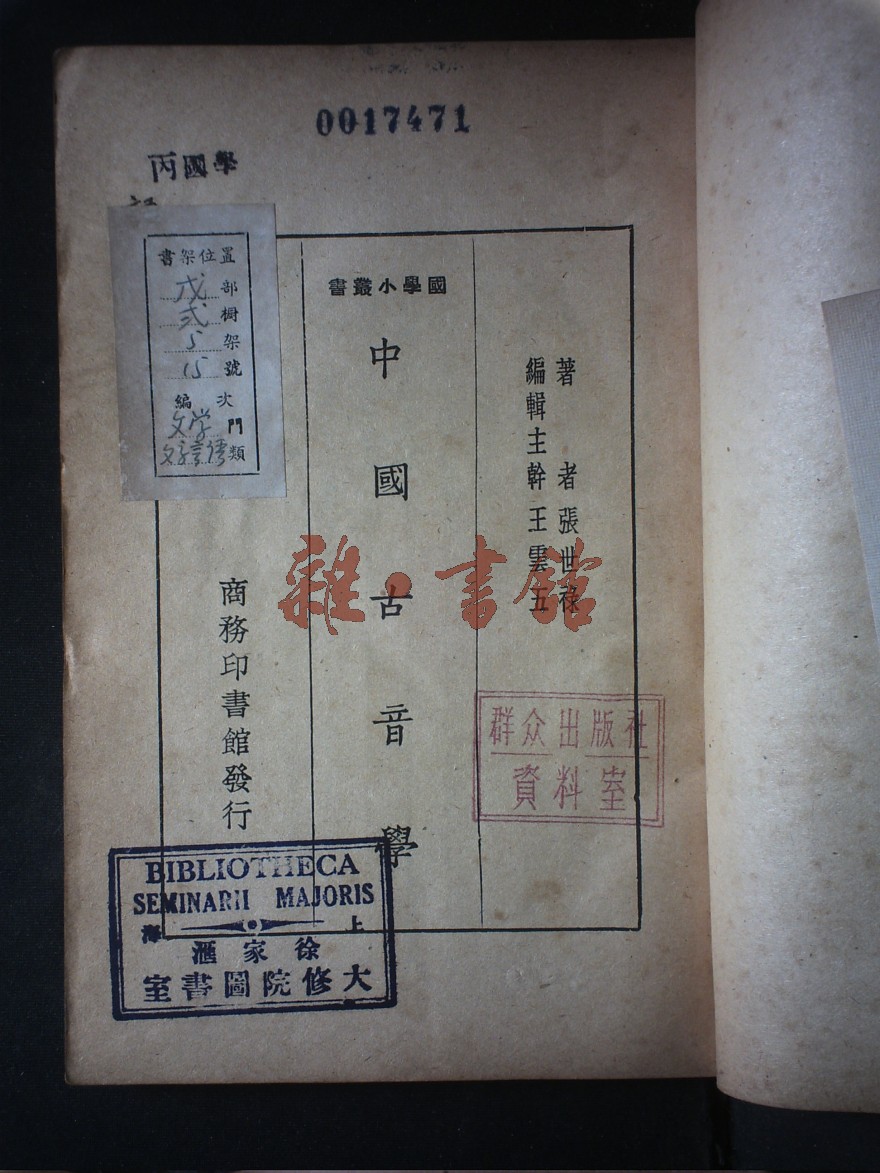 0017471
丙國學
書架位置
戊部
弍橱
5架
15號
編次
文学門
文字言语類
國學小叢書
中國古音學
著者張世祿
編輯主幹王雲五
商務印書館發行
雜·書館
群众出版社
資料室
BIBLIOTHECA
SEMINARII MAJORIS
上海
徐家滙
大修院圖書室